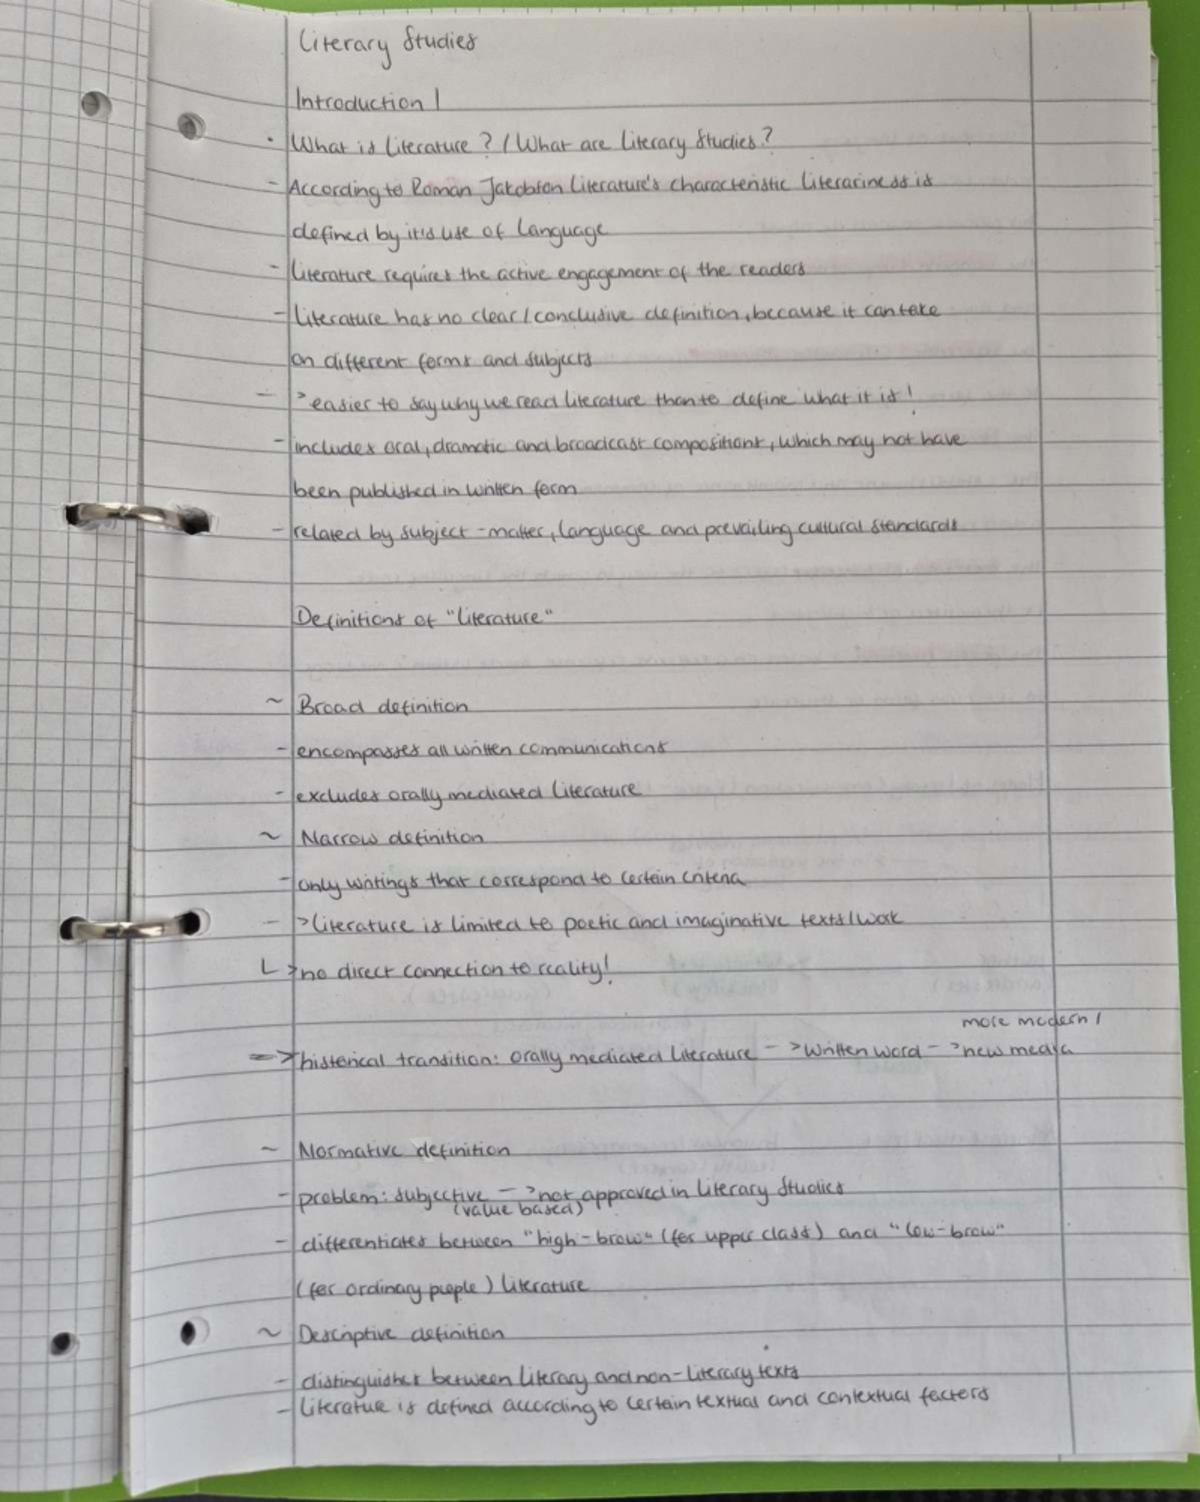 Literary Studies
Introduction 1
· What is Literature? / What are Literary Studies?
- According to Roman Jakobson Literature's characteristic literariness is
defined by it's use of Language
- Literature requires the active engagement of the readers
- Literature has no clear / conclusive definition, because it can take
on different forms and subjects
-> easier to say why we read literature than to define what it is!
- includes oral, dramatic and broadcast compositions, which may not have
been published in written form
- related by subject-matter, language and prevailing cultural standards
Definitions of "Literature"
~ Broad definition
- encompasses all written communications
- excludes orally mediated Literature
~ Narrow definition
- only writings that correspond to certain criteria
-> Literature is limited to poetic and imaginative texts/work
L> no direct connection to reality!
more modern /
=> historical transition: orally mediated Literature -> written word -> new media
~ Normative definition
- problem: subjective -> not approved in Literary Studies
(value based)
- differentiates between "high-brow" (for upper class) and "low-brow"
(for ordinary people) Literature
~ Descriptive definition
- distinguishes between Literary and non-Literary texts
- Literature is defined according to certain textual and contextual factors